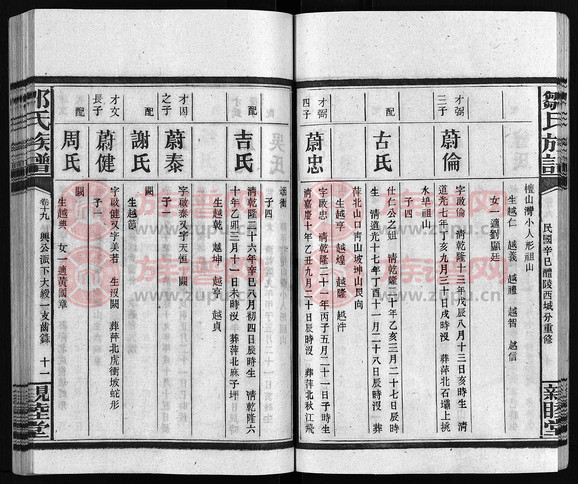 鄒氏族譜
民國辛巳醴陵西城分重修
親睦堂
檀山灣小人形祖山
生 越仁 越義 越禮 越智 越信
女一適劉顯廷
才弼三子
蔚倫
字啟倫 清乾隆十三年戊辰八月十三日亥時生 清
道光七年丁亥九月三十日戌時沒 葬萍北石壩上挑
水埠祖山
子四
配
古氏
仕仁公之姐 清乾隆二十年乙亥三月二十七辰時
生 清道光十七年丁酉十二月二十八日辰時沒 葬
萍北山口南山坡坤山艮向
生 越亨 越煌 越隆 越泮
才弼四子
蔚忠
字啟忠 清乾隆二十一年丙子五月二十一日子時生
清嘉慶十年乙丑九月二十日辰時沒 葬萍北秋江飛
子四
配
吉氏
清乾隆二十六年辛巳八月初四日辰時生 清乾隆六
十年乙卯三月十一日未時沒 葬萍北麻子坪
生 越乾 越坤 越亨 越貞
才因之子
蔚泰
字啟泰又字天恒 闕
子一
配
謝氏
闕
生 越節
才文長子
蔚健
字啟健又字美若 生沒闕 葬萍北虎衝坡蛇形
子一
配
周氏
闕
生 越興 女一適黃國章
鄒氏族譜
卷十九 興公派下大綬一支齒錄 十一
親睦堂
族譜網
www.zupu.cn